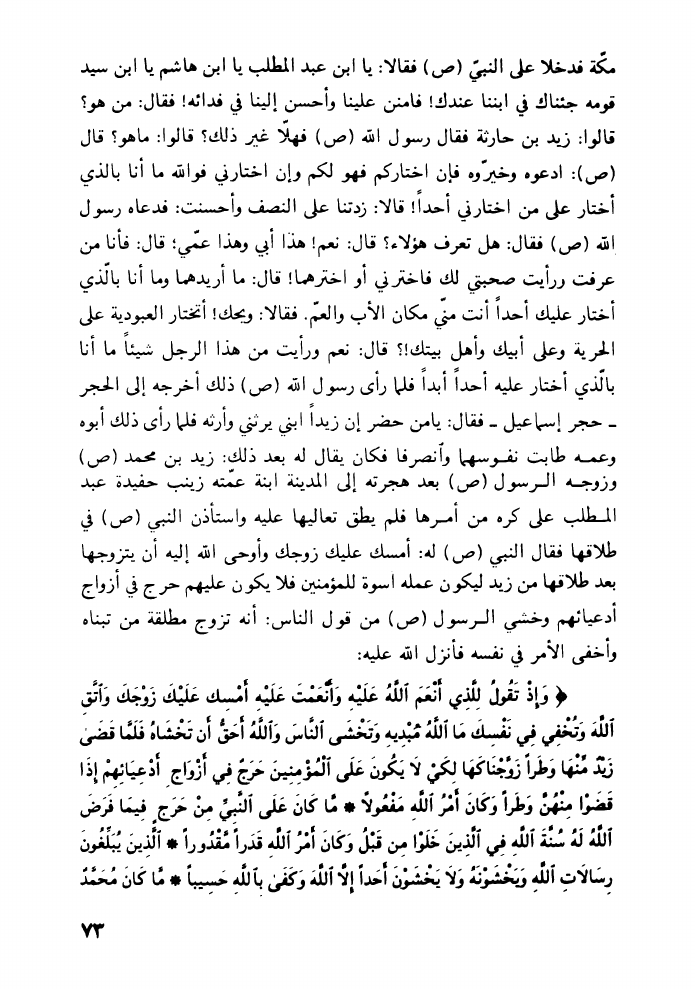 مكّة فدخلا على النبيّ (ص) فقالا: يا ابن عبد المطلب يا ابن هاشم يا ابن سيد
قومه جئناك في ابننا عندك! فامنن علينا وأحسن إلينا في فدائه! فقال: من هو؟
قالوا: زيد بن حارثة فقال رسول الله (ص) فهلّا غير ذلك؟ قالوا: ماهو؟ قال
(ص): ادعوه وخيرّوه فإن اختاركم فهو لكم وإن اختارني فوالله ما أنا بالذي
أختار على من اختارني أحداً! قالا: زدتنا على النصف وأحسنت: فدعاه رسول
الله (ص) فقال: هل تعرف هؤلاء؟ قال: نعم! هذا أبي وهذا عمّي؛ قال: فأنا من
عرفت ورأيت صحبتي لك فاخترني أو اخترهما! قال: ما أريدهما وما أنا بالّذي
أختار عليك أحداً أنت منّي مكان الأب والعمّ. فقالا: ويحك! أتختار العبودية على
الحرية وعلى أبيك وأهل بيتك!؟ قال: نعم ورأيت من هذا الرجل شيئاً ما أنا
بالّذي أختار عليه أحداً أبداً فلما رأى رسول الله (ص) ذلك أخرجه إلى الحجر
ـ حجر إسماعيل ـ فقال: يامن حضر إن زيداً ابني يرثني وأرثه فلما رأى ذلك أبوه
وعمه طابت نفوسهما وأنصرفا فكان يقال له بعد ذلك: زيد بن محمد (ص)
وزوجه الرسول (ص) بعد هجرته إلى المدينة ابنة عمّته زينب حفيدة عبد
المطلب على كره من أمرها فلم يطق تعاليها عليه واستأذن النبي (ص) في
طلاقها فقال النبي (ص) له: أمسك عليك زوجك وأوحى الله إليه أن يتزوجها
بعد طلاقها من زيد ليكون عمله اسوة للمؤمنين فلا يكون عليهم حرج في أزواج
أدعيائهم وخشي الرسول (ص) من قول الناس: أنه تزوج مطلقة من تبناه
وأخفى الأمر في نفسه فأنزل الله عليه:
﴿ وَإِذْ تَقُولُ لِلَّذِي أَنْعَمَ اللَّهُ عَلَيْهِ وَأَنْعَمْتَ عَلَيْهِ أَمْسِك عَلَيْكَ زَوْجَكَ وَاتَّقِ
اللَّهَ وَتُخْفِي فِي نَفْسِكَ مَا اللَّهُ مُبْدِيهِ وَتَخْشَى النَّاسَ وَاللَّهُ أَحَقُّ أَن تَخْشَاهُ فَلَمَّا قَضَىٰ
زَيْدٌ مِّنْهَا وَطَراً زَوَّجْنَاكَهَا لِكَيْ لَا يَكُونَ عَلَى الْمُؤْمِنِينَ حَرَجٌ فِي أَزْوَاجِ أَدْعِيَائِهِمْ إِذَا
قَضَوْا مِنْهُنَّ وَطَراً وَكَانَ أَمْرُ اللَّهِ مَفْعُولاً * مَّا كَانَ عَلَى النَّبِيِّ مِنْ حَرَجٍ فِيمَا فَرَضَ
اللَّهُ لَهُ سُنَّةَ اللَّهِ فِي الَّذِينَ خَلَوْا مِن قَبْلُ وَكَانَ أَمْرُ اللَّهِ قَدَراً مَّقْدُوراً * الَّذِينَ يُبَلِّغُونَ
رِسَالَاتِ اللَّهِ وَيَخْشَوْنَهُ وَلَا يَخْشَوْنَ أَحَداً إِلَّا اللَّهَ وَكَفَىٰ بِاللَّهِ حَسِيباً * مَّا كَانَ مُحَمَّدٌ
٧٣